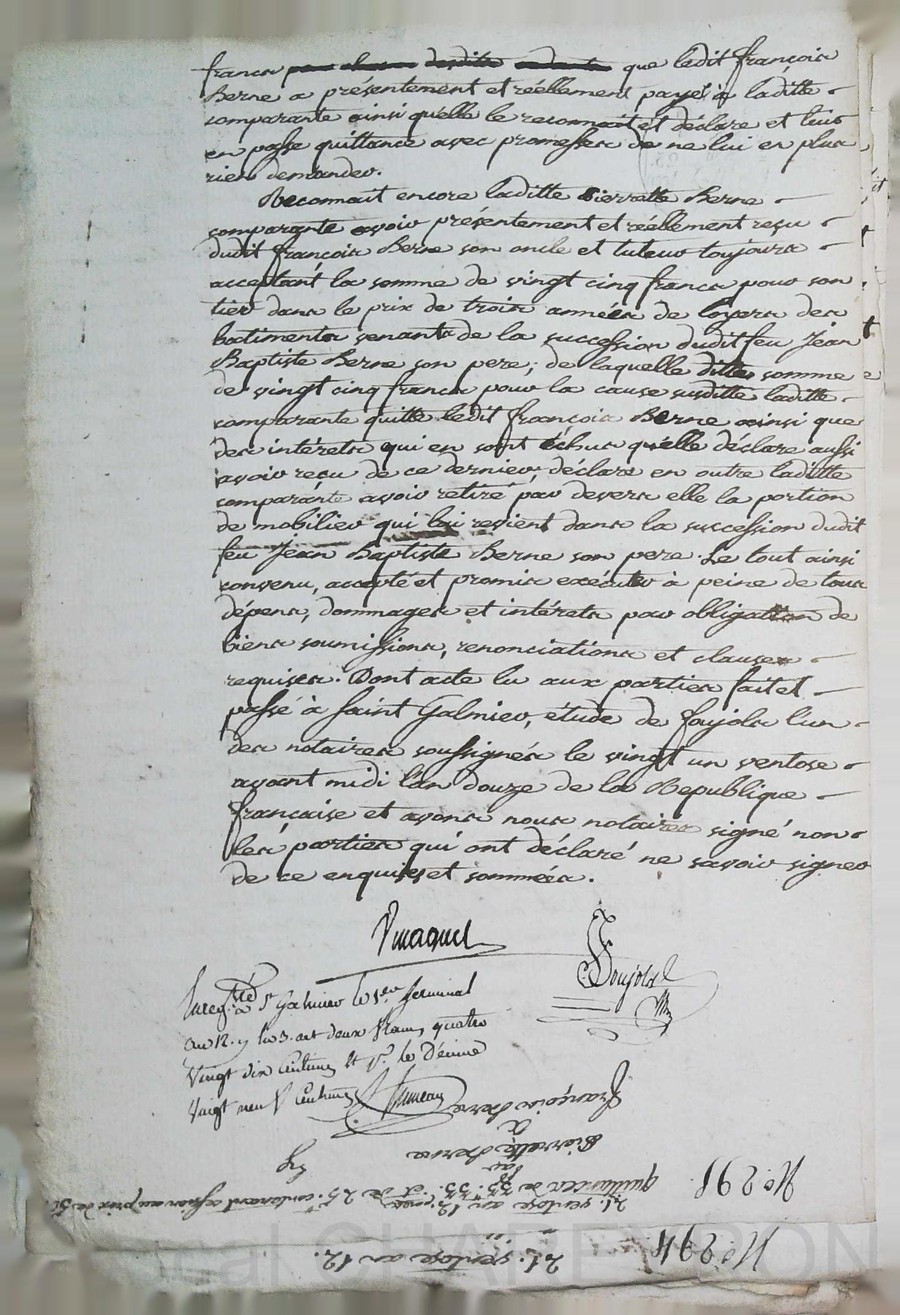 francs pour chacun desdits que ledit françois
Berne a présentement et réellement payé à laditte
comparante ainsi qu'elle le reconnait et déclare et lui
en passe quittance avec promesses de ne lui en plus
rien demander.
Reconnait encore laditte Pierrette Berne
comparante avoir présentement et réellement reçu
dudit françois Berne son oncle et tuteur toujours
acceptant la somme de vingt cinq francs pour son
tier dans le prix de trois années de loyers des
batiments venants de la succession dudit feu Jean
Baptiste Berne son pere; de laquelle ditte somme
de vingt cinq francs pour la cause susditte laditte
comparante quitte ledit françois Berne ainsi que
des intérets qui en sont échus qu'elle déclare aussi
avoir reçu de ce dernier déclare en outre laditte
comparante avoir retiré par devers elle la portion
de mobilier qui lui revient dans la succession dudit
feu Jean Baptiste Berne son pere. Le tout ainsi
convenu, accepté et promis exécuter à peine de tous
dépens, dommages et intérets par obligation de
biens soumissions, renonciations et clauses
requises. Dont acte lu aux parties fait et
passé à Saint Galmier, étude de foujols l'un
des notaires soussignés le vingt un ventose
avant midi l'an douze de la République
française et avons nous notaires signé non
les parties qui ont déclaré ne savoir signer
de ce enquises et sommées.
Foujols
Enreg.tré à St Galmier le 1er Germinal
an 12. reçu deux francs quatre
vingt dix centimes et pr. le Décime
vingt neuf Centimes
françois Berne
à
Pierrette Berne
par
21 ventose an 12
No. 298.
No. 294
21. ventose an 12.